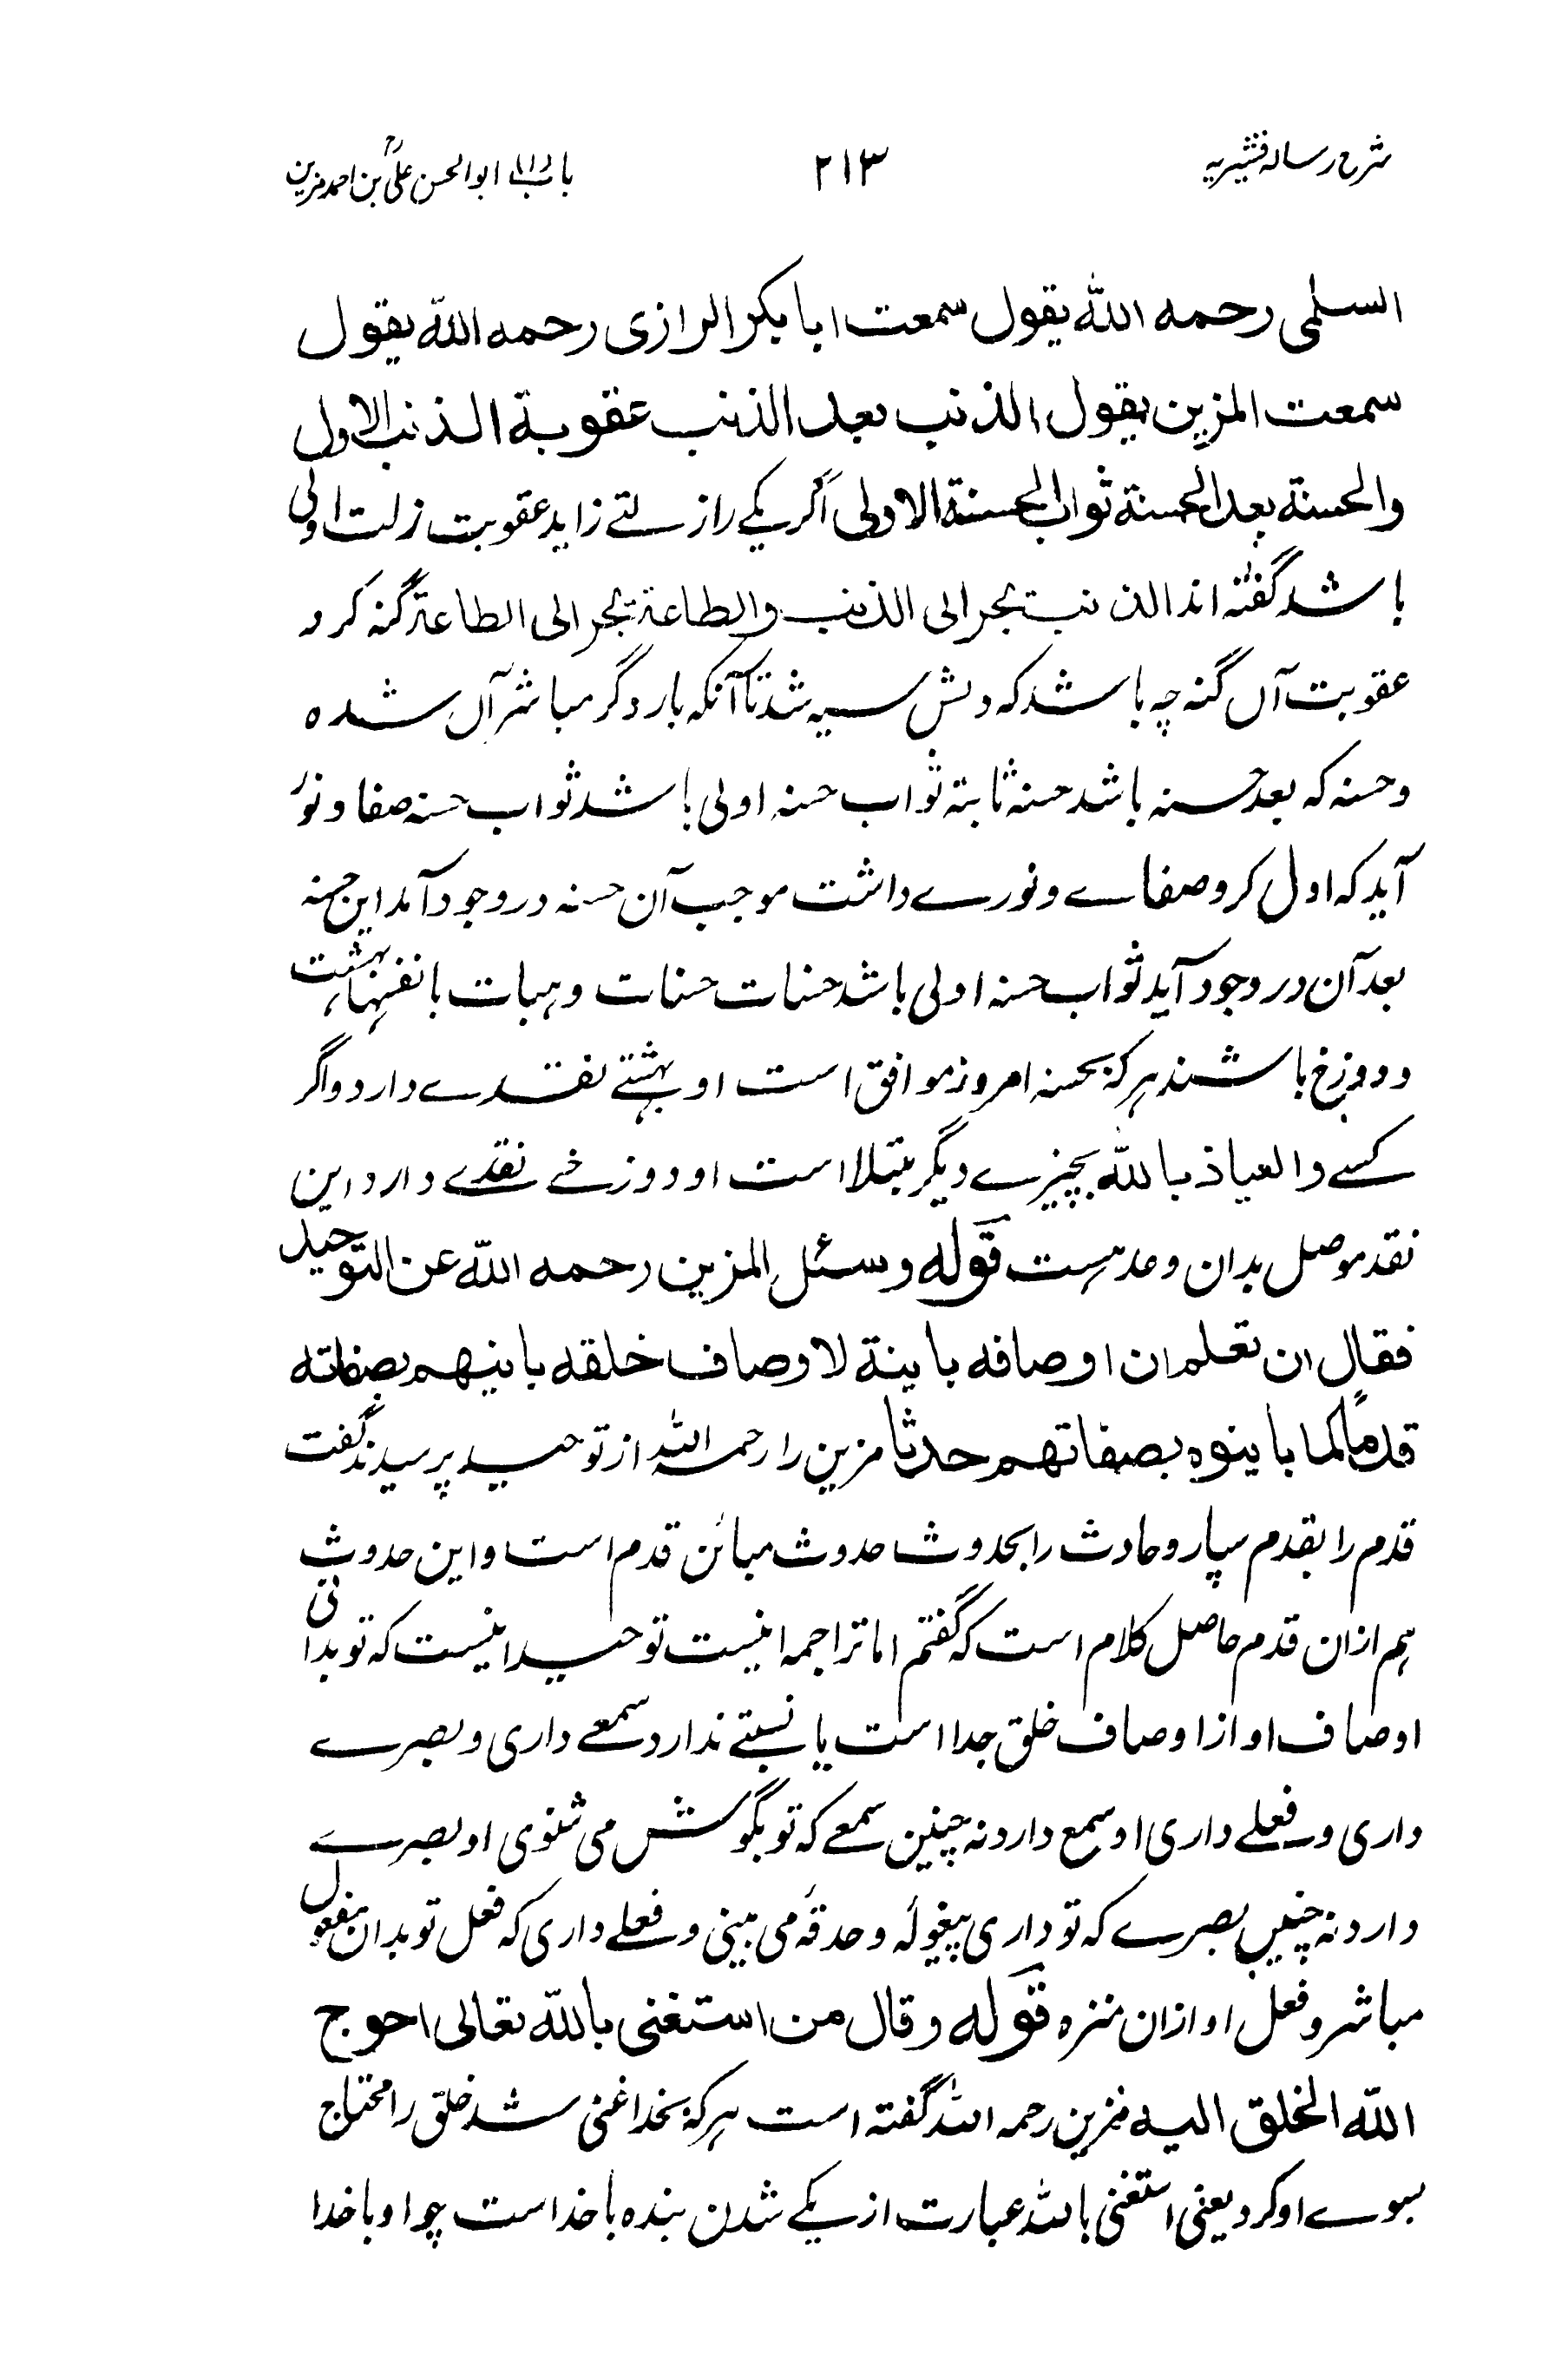 شرح رسالہ قشیریہ ۲۱۳ باب ابوالحسن علی بن احمد مزین
السلمی رحمه الله یقول سمعت ابا بکر الرازی رحمه الله یقول
سمعت المزین یقول الذنب بعد الذنب عقوبة الذنب الاول
والحسنة بعد الحسنة ثواب الحسنة الاولی اگر یکے را زلتے زاید عقوبت زلت اولی
باشد گفته اند الذنب تجر الی الذنب والطاعة تجر الی الطاعة گنه کرد
عقوبت آں گنه چه باشد که دلش سیه شد تا آنکه بار دگر مباشر آں شده
و حسنه که بعد حسنه باشد حسنه ثابته ثواب حسنه اولی باشد ثواب حسنه صفا و نور
آید که اول کرد صفاے و نورے داشت موجب آن حسنه در وجود آمد این حسنه
بعد آن در وجود آید ثواب حسنه اولی باشد حسنات حسنات و هبات بانفسها بهشت
و دوزخ باشند هر که بحسنه امروز موافق است او بهشتے نقدے دارد و اگر
کسے والعیاذ بالله بچیزے دیگر مبتلا است او دوزخے نقدے دارد این
نقد موصل بدان وعد هست قوله وسئل المزین رحمه الله عن التوحید
فقال ان تعلم ان اوصافه باینة لاوصاف خلقه باینهم بصفاته
قدماً کما باینوه بصفاتهم حدثا مزین را رحمه الله از توحید پرسیدند گفت
قدم را بقدم سپار و حادث را بحدوث حدوث مبائن قدم است و این حدوث
هم ازان قدم حاصل کلام است که گفتم اما تراجمه اینست توحید اینست که تو بدانی
اوصاف او از اوصاف خلق جدا است یا نسبتے ندارد سمعے داری و بصرے
داری و فعلے داری او سمع دارد نه چنین سمعے که تو بگوش می شنوی او بصرے
دارد نه چنیں بصرے که تو داری بپیغولۂ و حدقۂ می بینی و فعلے داری که فعل تو بدان مفعول
مباشر و فعل او ازان منزه قوله وقال من استغنی بالله تعالی احوج
الله الخلق الیه مزین رحمه الله گفته است هر که بخدا غنی شد خلق را محتاج
بسوے او کرد یعنی استغنی بالله عبارت از یکے شدن بنده با خدا است چو او با خدا